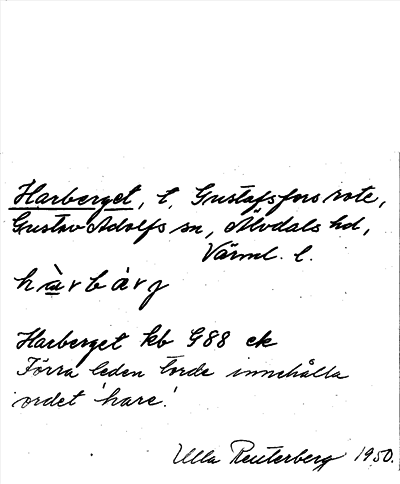 Harberget, t, Gustafsfors rote,
Gustav Adolfs sn, Älvdals hd,
Värml. l.
hàrbárg
Harberget kb G88 ek
Förra leden torde innehålla
ordet 'hare'.
Ulla Reuterberg 1950.